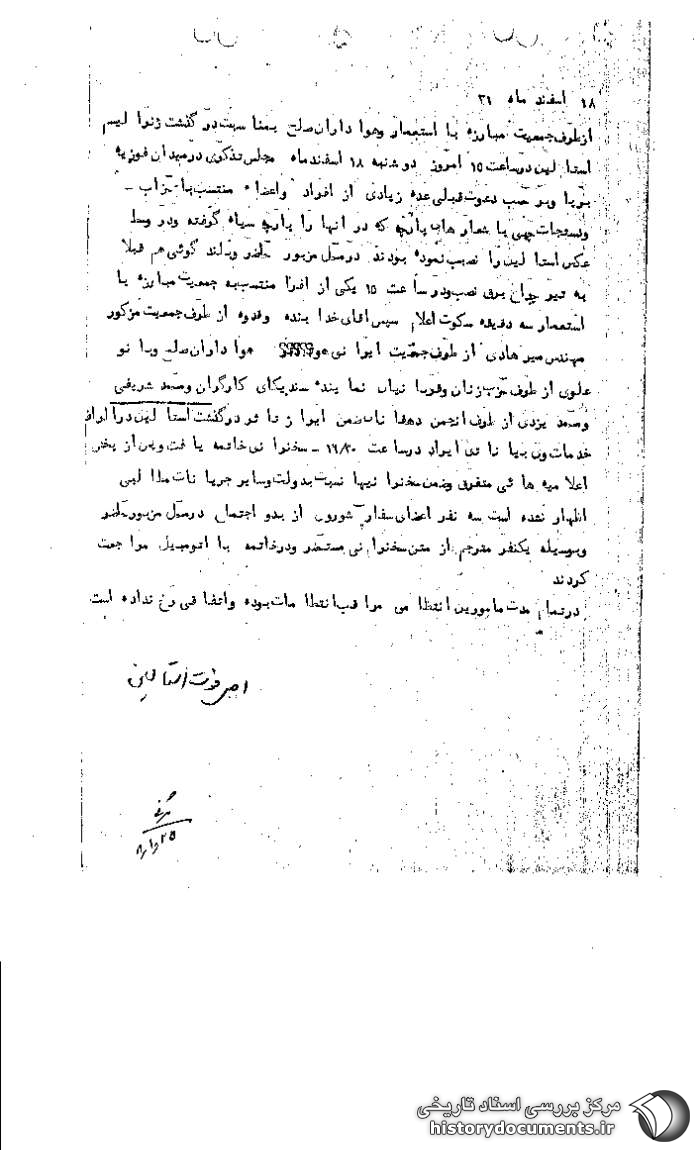 ۱۸ اسفند ماه ۳۱
ازطرف جمعیت مبارزه با استعمار وهوا داران صلح بمنا سبت در گذشت ژنرا لیسم
استا لین درساعت ۱۵ امروز دو شنبه ۱۸ اسفندماه مجلس تذکری درمیدان فوزیه
برپا وبر حسب دعوت قبلی عده زیادی از افراد واعضاء منتسب با حزاب -
ودستجات چپی با شعار های پارچه که در انها را پارچه سیاه گرفته ودر وسط
عکس استا لین را نصب نموده بودند درمحل مزبور حاضر وبلند گوئی هم قبلا
به تیر چراغ برق نصب ودر ساعت ۱۵ یکی از افرا منتسب به جمعیت مبارزه با
استعمار سه دقیقه سکوت اعلام سپس اقای خدا بنده وقدوه از طرف جمعیت مزکور
مهندس میر هادی از طرف جمعیت ایرا نی هوا داران صلح وبا نو
علوی از طرف زنان وقربا نیان نما ینده سندیکای کارگران ومحمد شریفی
ومحمد یزدی از طرف انجمن دهقا نان ضمن ابرا ز تا ثر درگذشت استا لین درا اطراف
خدمات وی بیا نا تی ایراد درساعت ۱۶/۳۰ - سخنرا نی خاتمه یا فت وپس از پخش
اعلا میه ها ئی متفرق وضمن سخنرا نیها نسبت بدولت وسایر جریا نات مطا لبی
اظهار نشده است سه نفر اعضای سفارت شوروی از بدو اجتماع درمحل مزبور حاضر
وبوسیله یکنفر مترجم از متن سخنرا نی مستحضر ودرخاتمه با اتومبیل مرا جعت
کردند
درتمام مدت مامورین انتظا می مرا قب انتظا مات بوده واتفا قی رخ نداده است
فوت استالین
مرکز بررسی اسناد تاریخی
historydocuments.ir